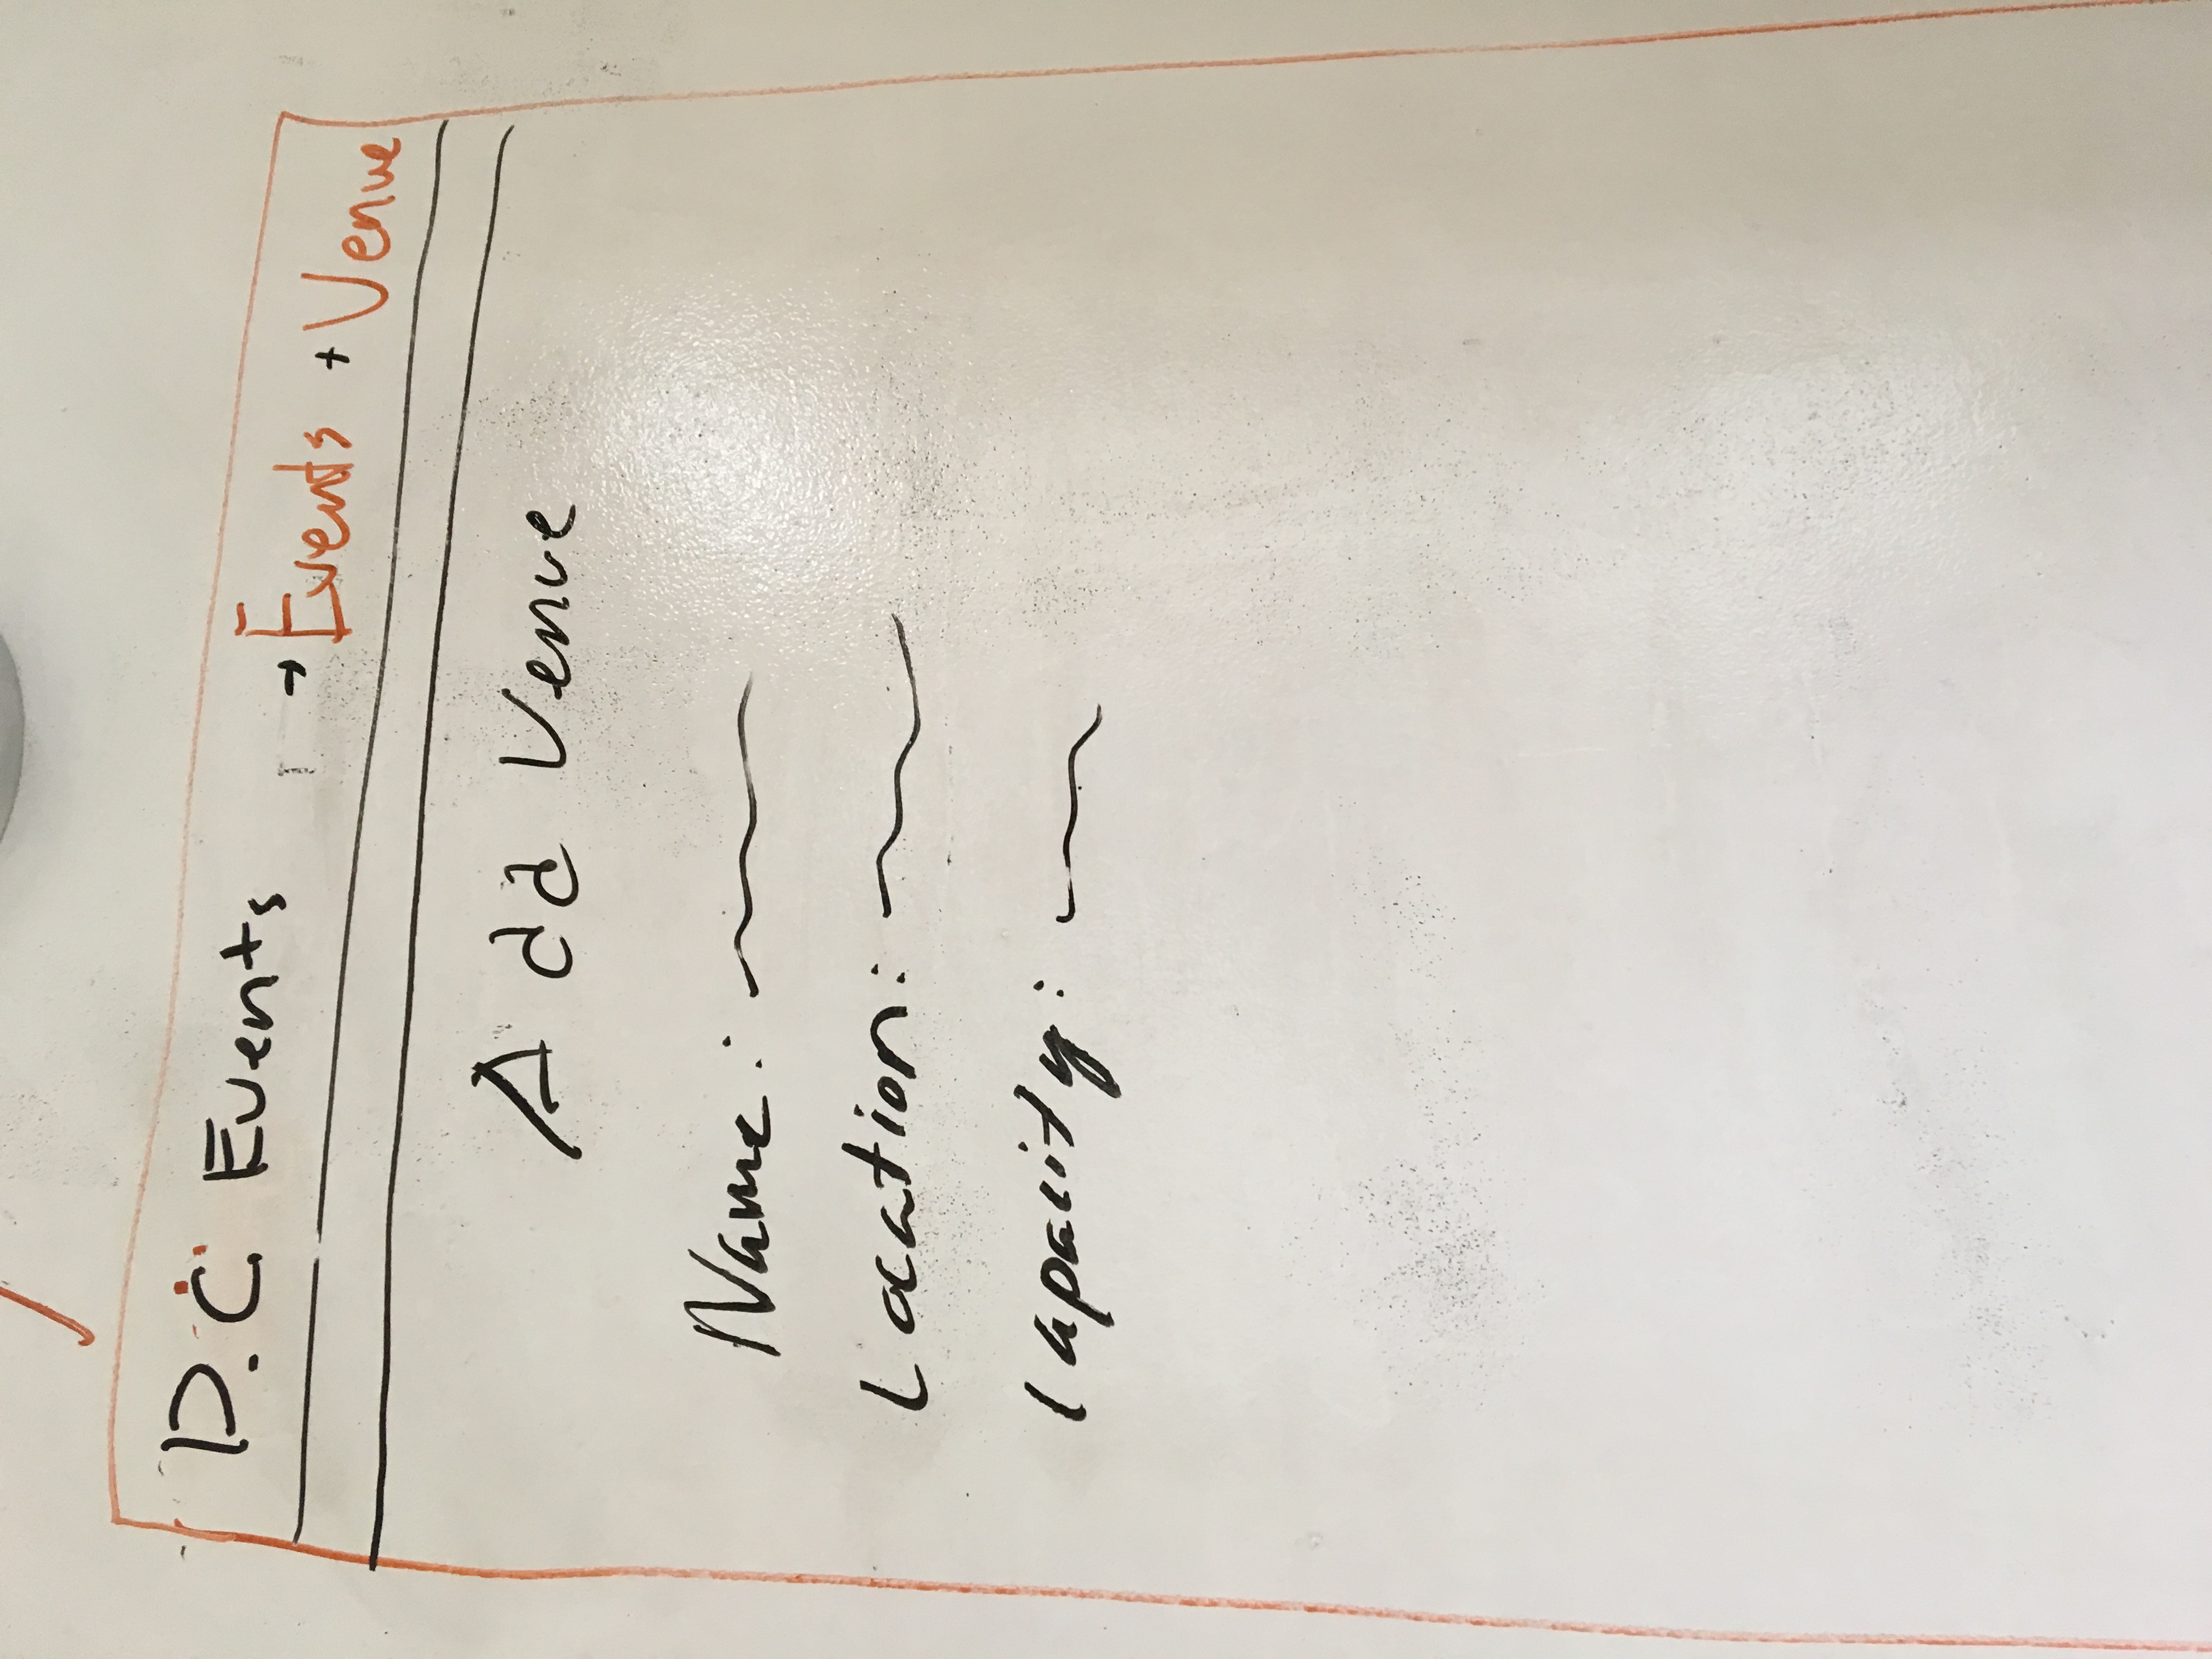 D.C Events + Events + Venue
Add Venue
Name:
Location:
Capacity: